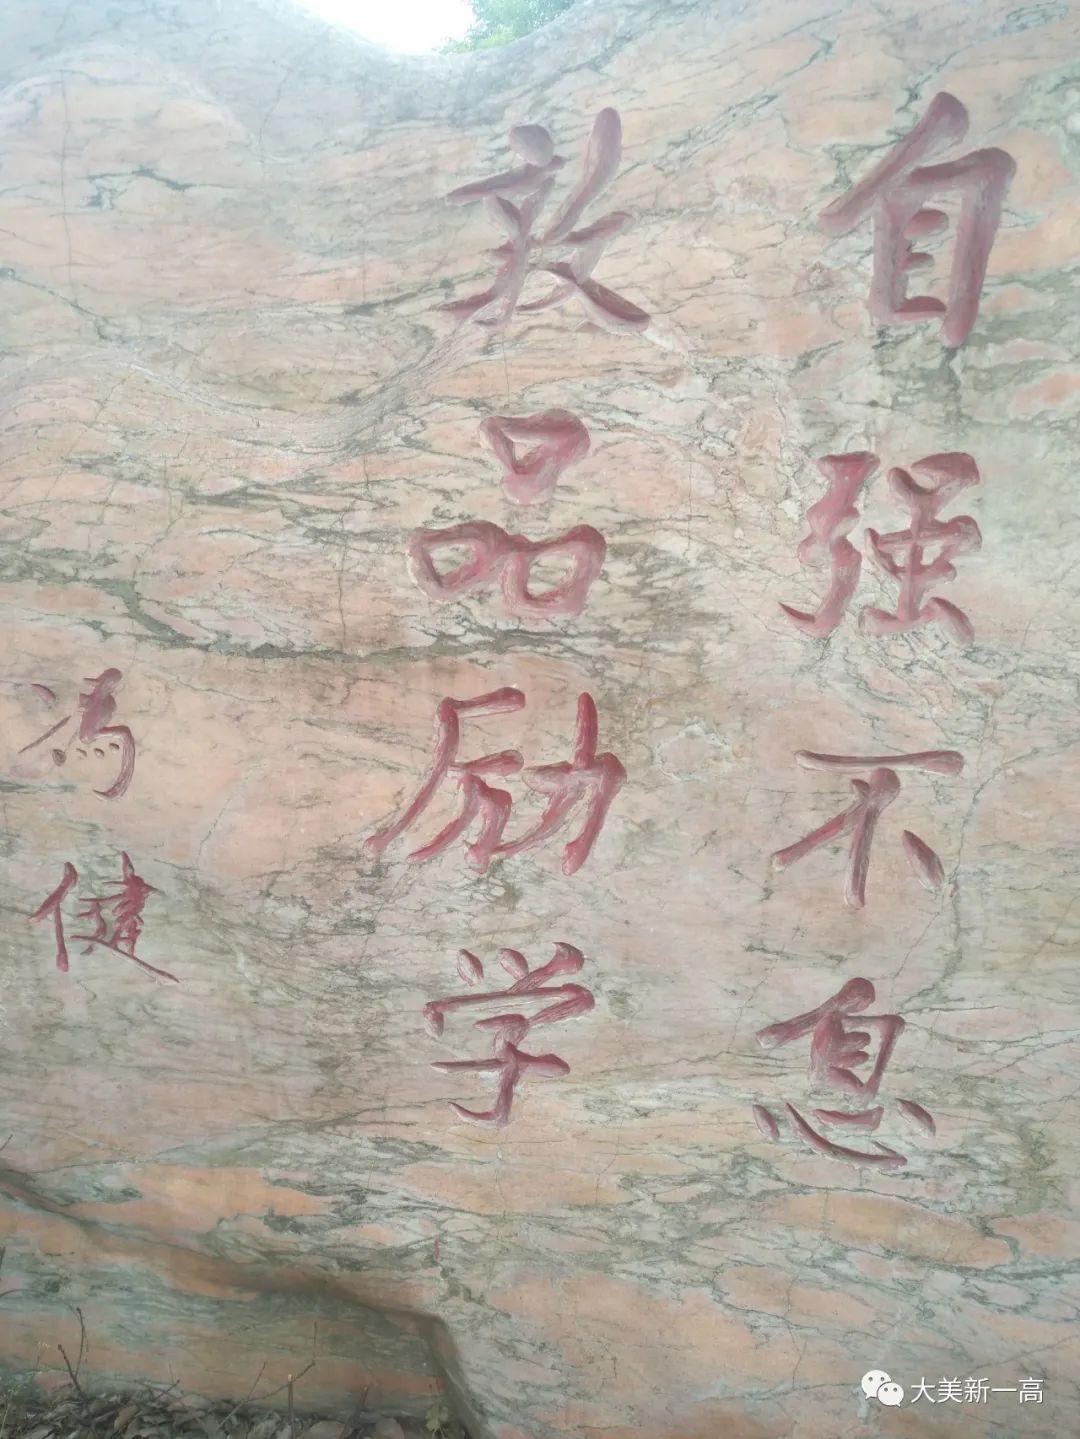 自强不息
敦品励学
冯健
大美新一高